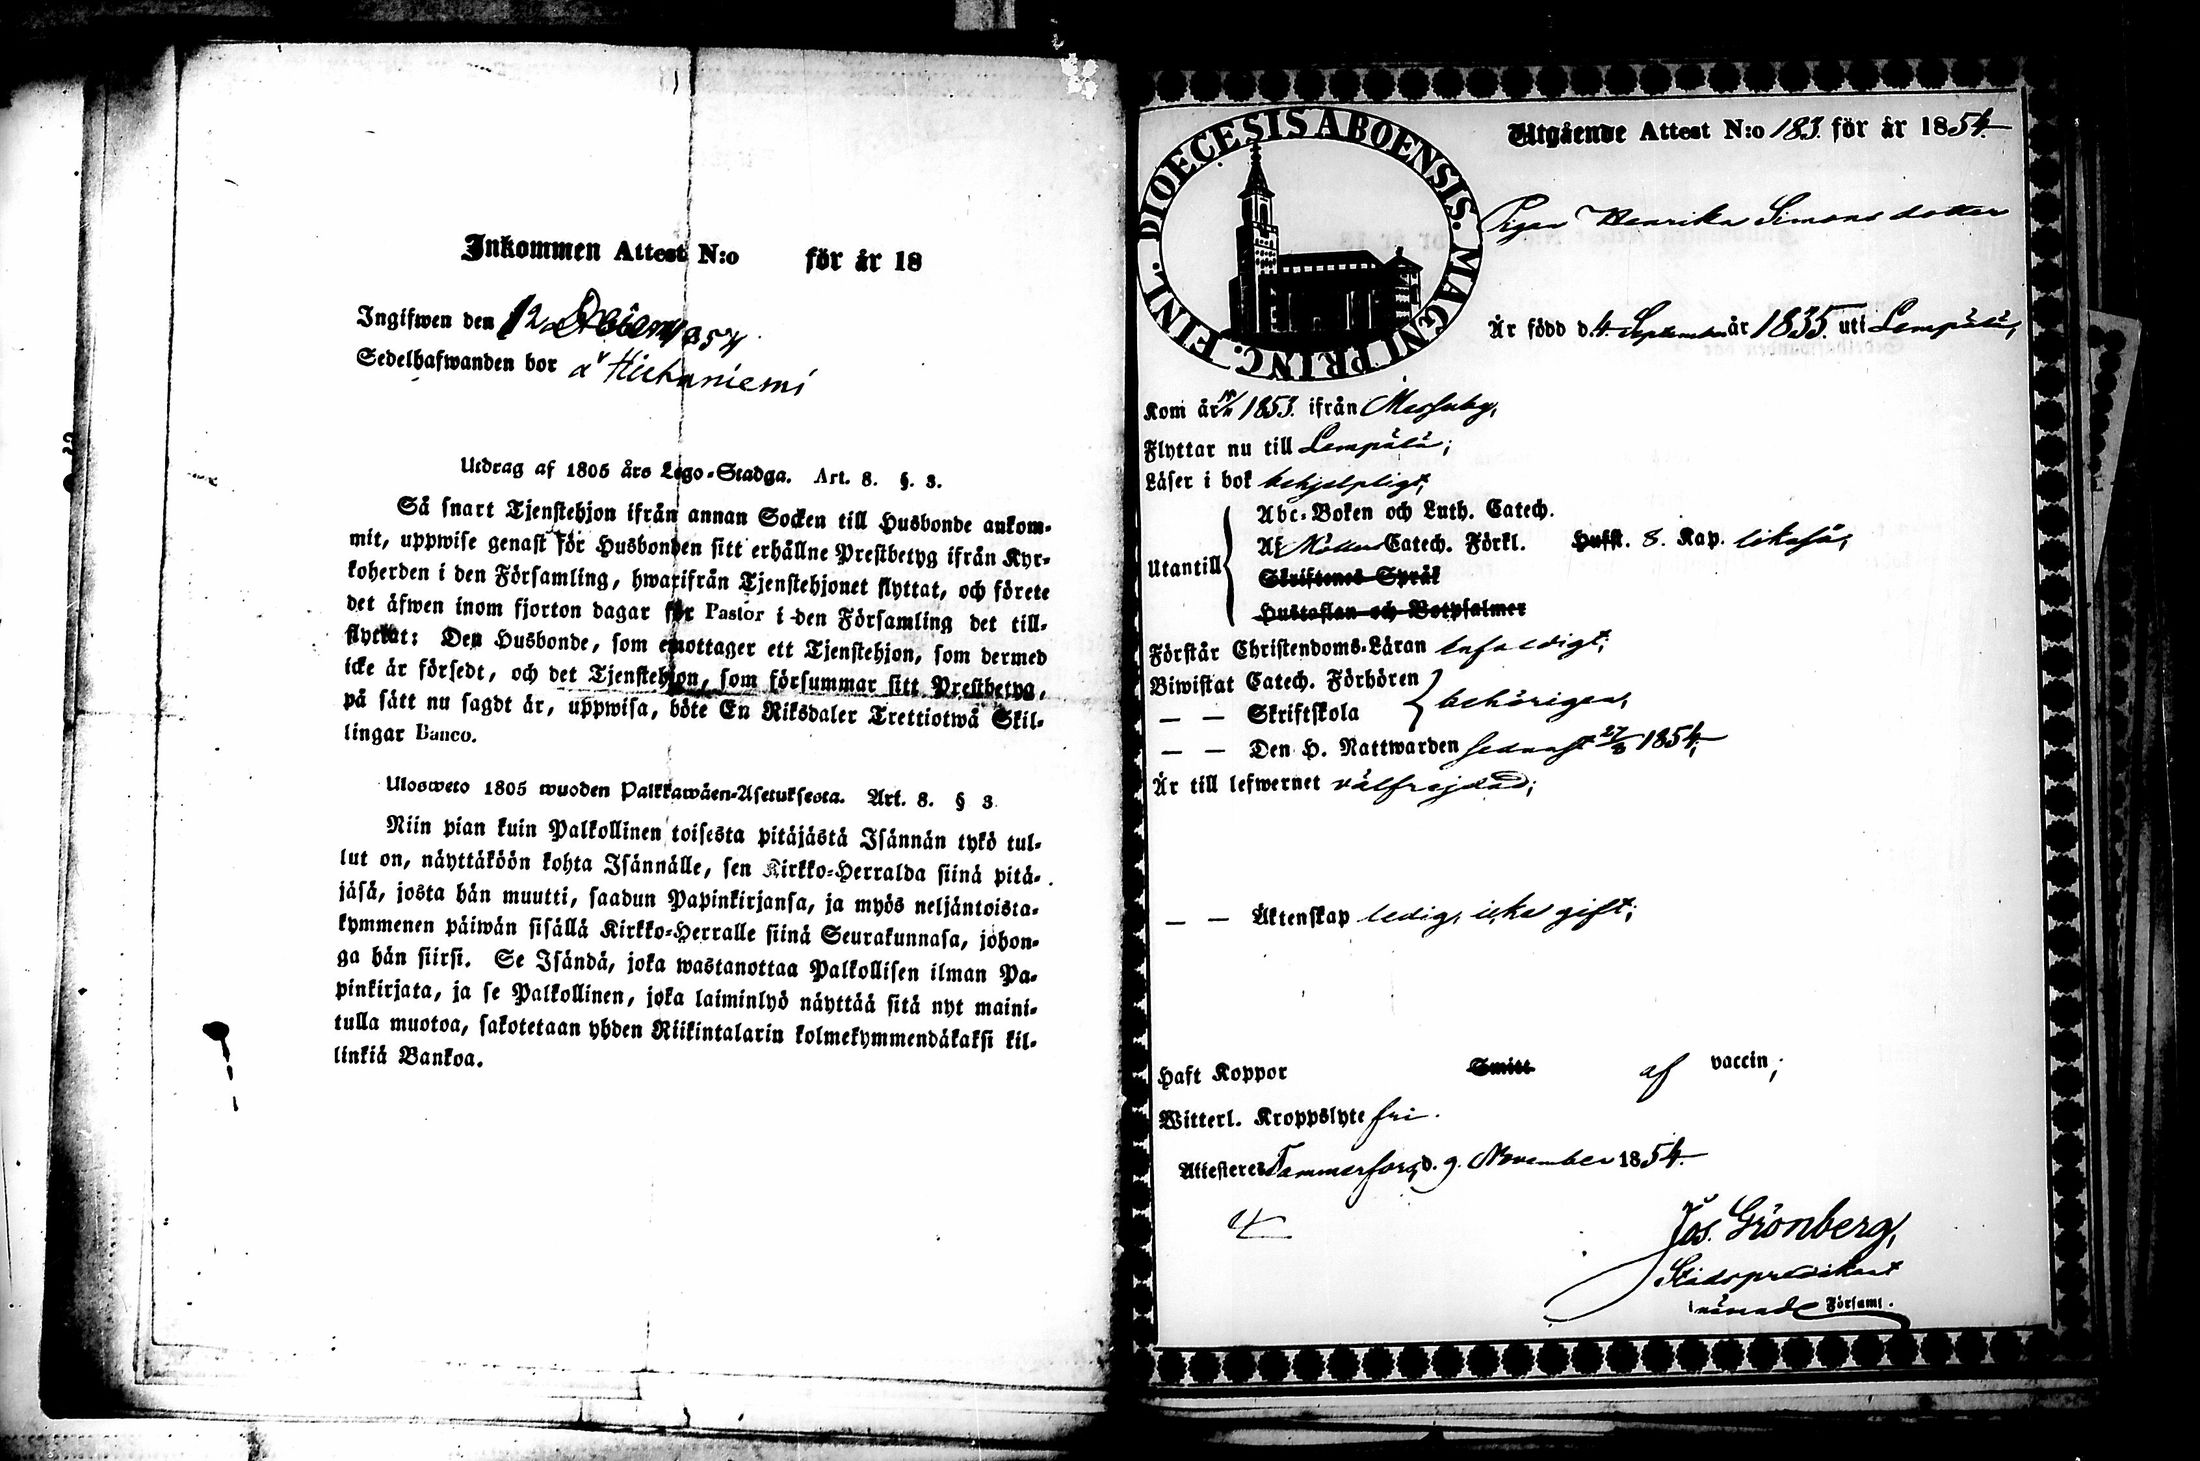 Inkommen Attest N:o för år 18
Ingifwen den 12 1854
Sedelhafwanden bor å Hiehaniemi
Utdrag af 1805 års Lego-Stadga. Art. 8. §. 3.
Så snart Tjenstehjon ifrån annan Socken till Husbonde ankom-
mit, uppwise genast för Husbonden sitt erhållne Prestbetyg ifrån Kyr-
koherden i den Församling, hwarifrån Tjenstehjonet flyttat, och förete
det äfwen inom fjorton dagar för Pastor i den Församling det till-
flyttat: Den Husbonde, som emottager ett Tjenstehjon, som dermed
icke är försedt, och det Tjenstehjon, som försummar sitt Prestbetyg,
på sätt nu sagdt är, uppwisa, böte En Riksdaler Trettiotwå Skil-
lingar Banco.
Ulosweto 1805 wuoden Palkkawäen-Asetuksesta. Art. 8. § 3
Niin pian kuin Palkollinen toisesta pitäjästä Isännän tykö tul-
lut on, näyttäköön kohta Isännälle, sen Kirkko-Herralda siinä pitä-
jäsä, josta hän muutti, saadun Papinkirjansa, ja myös neljäntoista-
kymmenen päiwän sisällä Kirkko-Herralle siinä Seurakunnasa, johon-
ga hän siirsi. Se Isändä, joka wastanottaa Palkollisen ilman Pa-
pinkirjata, ja se Palkollinen, joka laiminlyö näyttää sitä nyt maini-
tulla muotoa, sakotetaan yhden Riikintalarin kolmekymmendäkaksi kil-
linkiä Bankoa.
DIOECESIS ABOENSIS. MAGNI PRINC. FINL.
Utgående Attest N:o 183. för år 1854
Pigan Henrika Simonsdotter
Är född d. 4 September år 1835 uti Lempälä,
Kom år 1853. ifrån Messuby,
Flyttar nu till Lempälä;
Läser i bok behjelpligt,
Utantill
Abc-Boken och Luth. Catech.
Af Möllers Catech. Förkl. Husst. 8. Kap. likaså,
Skriftenes Språk
Hustaflan och Botpsalmer
Förstår Christendoms-Läran enfaldigt;
Biwistat Catech. Förhören
— — Skriftskola
behörigen,
— — Den H. Nattwarden sednast 27/8 1854;
Är till lefwernet välfrejdad;
— — Äktenskap ledig, icke gift;
Haft Koppor Smitt af vaccin;
Witterl. Kroppslyte fri.
Attesteres Tammerfors, d. 9. November 1854.
Jos. Grönberg,
Stadspredikant
i nämnde Församl.